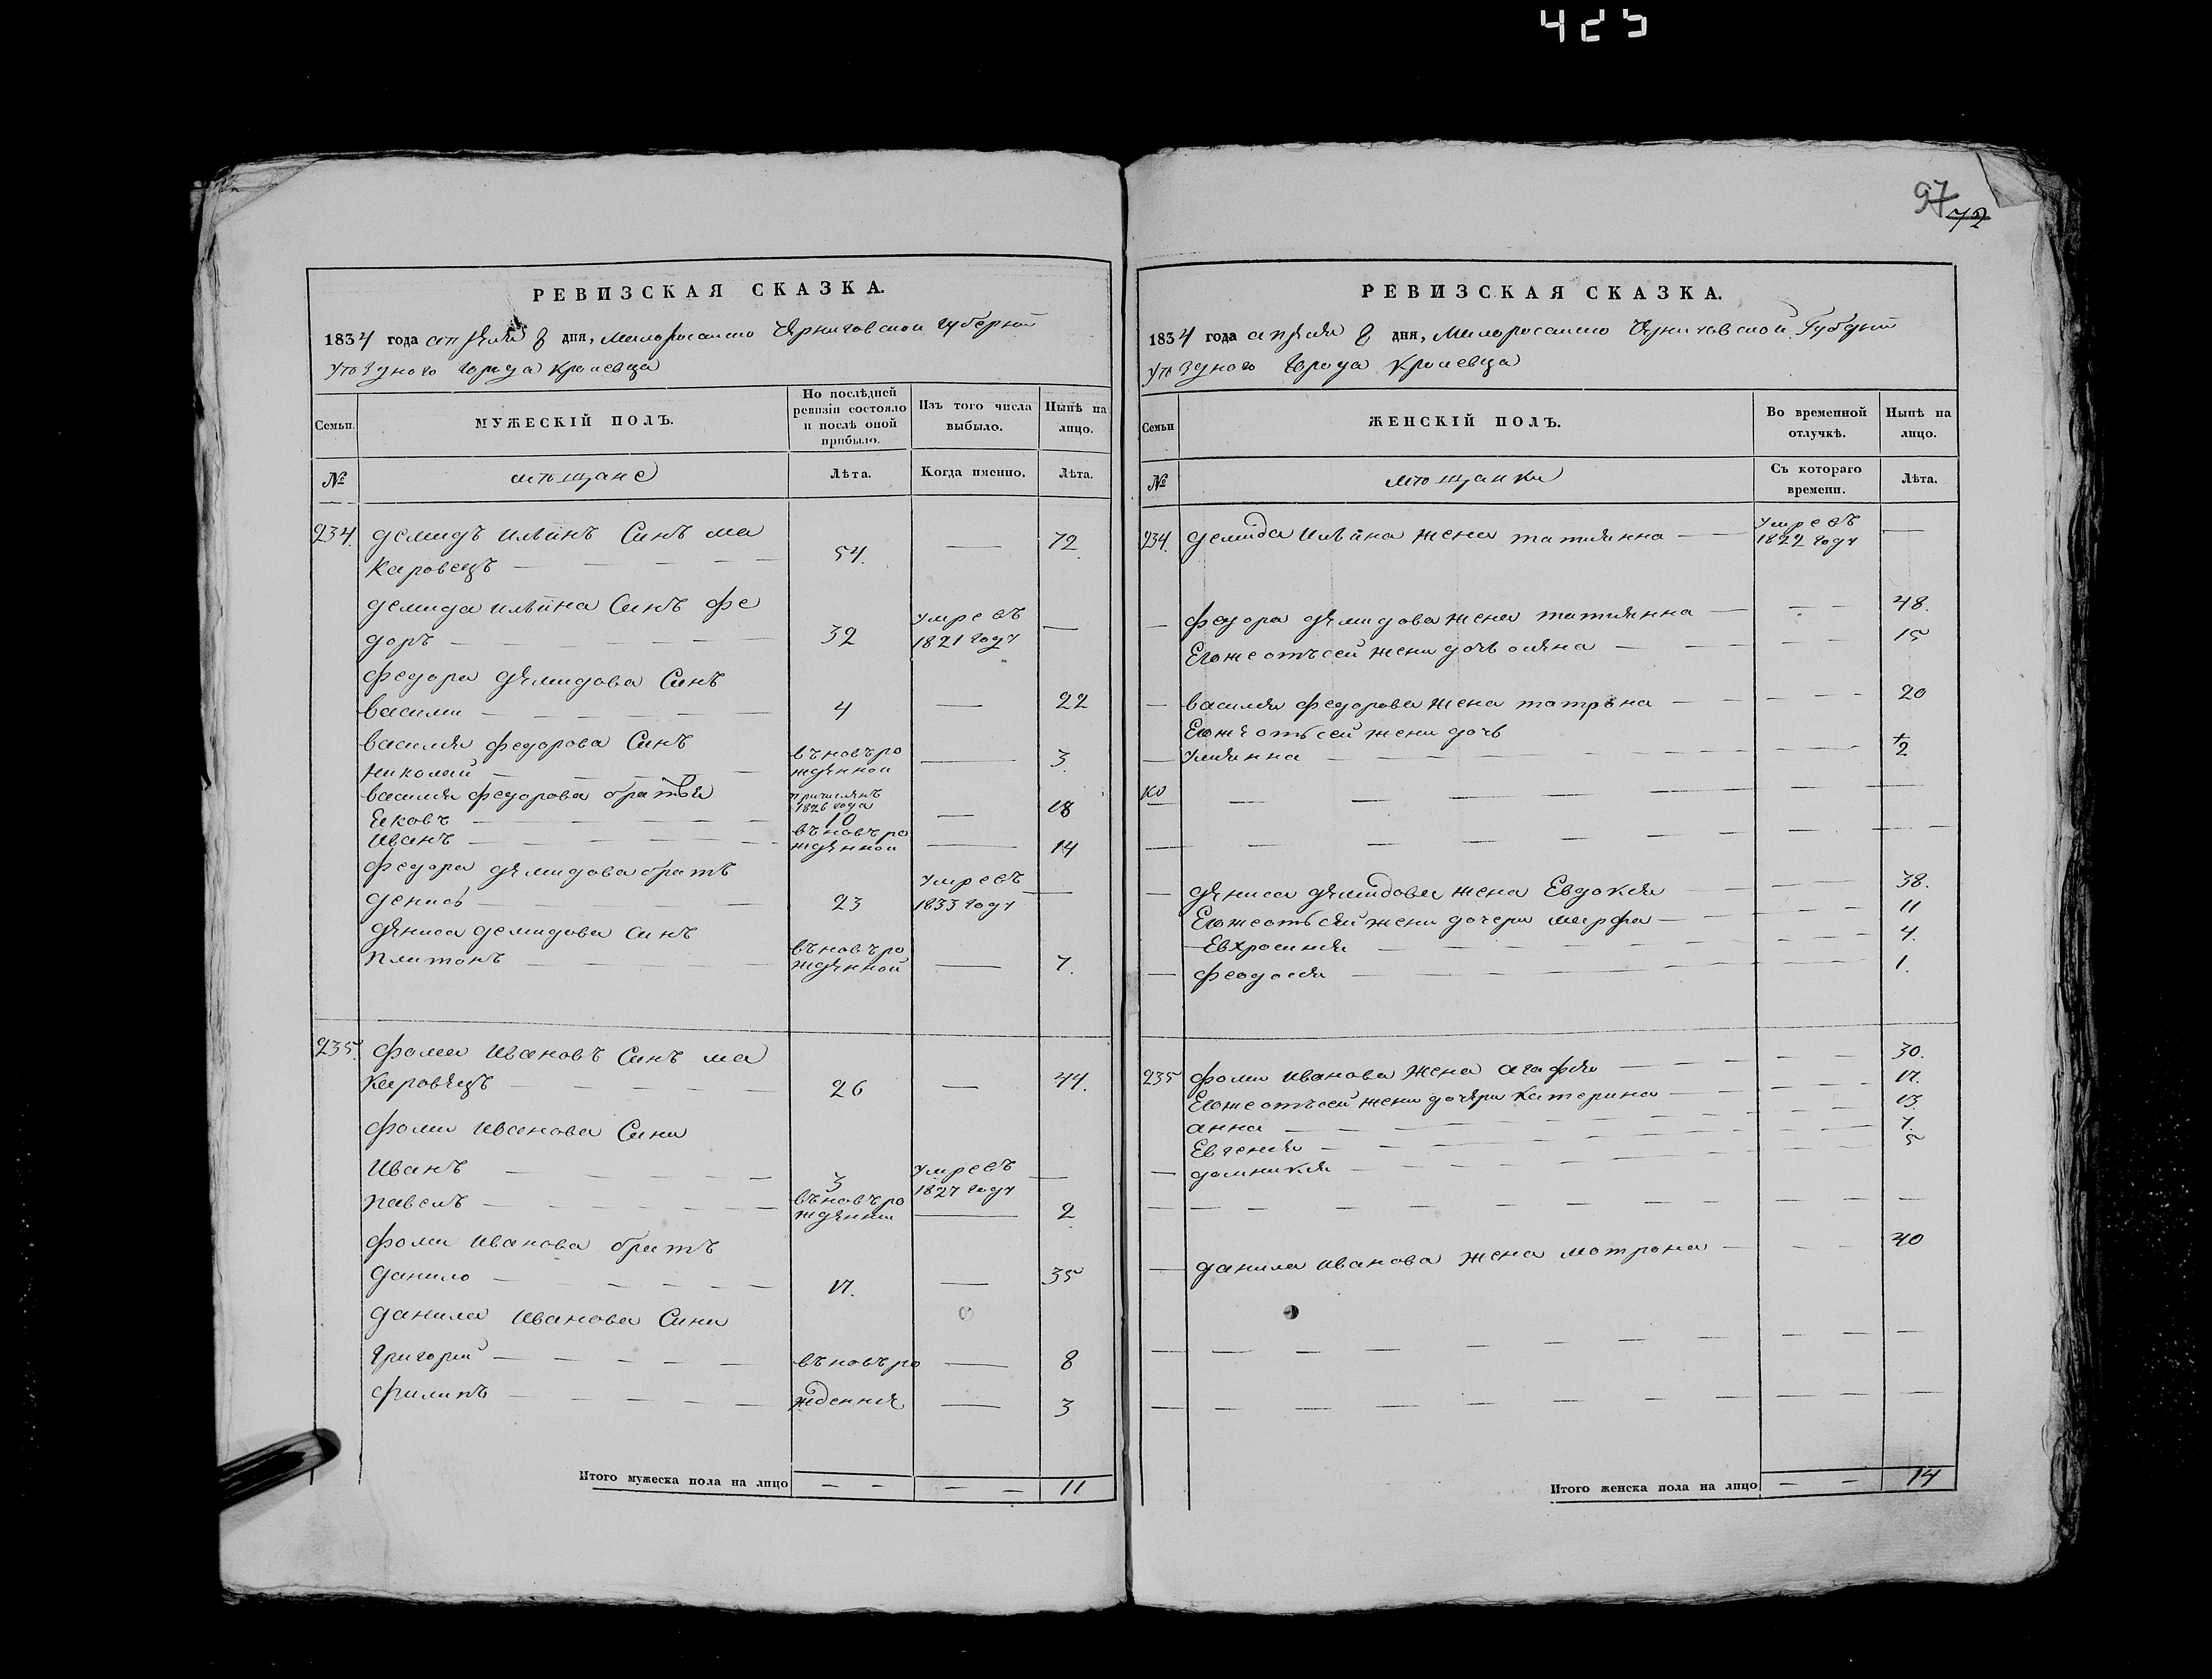 425
97
72
РЕВИЗСКАЯ СКАЗКА.
1834 года апреля 8 дня, Малоросийско Черниговской губернии
уѣздного города Кролевца
Семьи.
МУЖЕСКІЙ ПОЛЪ.
По послѣдней ревизіи состояло и послѣ оной прибыло.
Изъ того числа выбыло.
Нынѣ на лицо.
№
мѣщане
Лѣта.
Когда именно.
Лѣта.
234. демидъ Ильинъ Синъ ма
каровецъ 54. 72.
демида ильина Синъ фе
доръ 32 умре въ 1821 году
федора демидова Синъ
василий 4 22
василия федорова Синъ
николай въновъ рожденной 3.
василия федорова братья
Яковъ причисленъ 1826 года 10 18
иванъ въновъ рожденной 14
федора демидова братъ
денисъ 23 умре въ 1833 году
дениса демидова синъ
платонъ въновъ рожденной 7.
235. фома Ивановъ Синъ ма
каровецъ 26 44.
фоми иванова Сини
Иванъ 3 умре въ 1827 году
павелъ въновъ рожденни 2
фоми иванова братъ
данило 17. 35
данила иванова Сини
григорий въновъ ро 8
филипъ жденния 3
Итого мужеска пола на лицо 11
РЕВИЗСКАЯ СКАЗКА.
1834 года апреля 8 дня, Малоросийско Черниговской Губернии
уѣздного города Кролевца
Семьи
ЖЕНСКІЙ ПОЛЪ.
Во временной отлучкѣ.
Нынѣ на лицо.
№
мѣщанки
Съ котораго времени.
Лѣта.
234. демида Ильина жена татиянна умре въ 1822 году
федора демидова жена татиянна 48.
Егоже отъсей жени дочь олена 15
василия федорова жена матрона 20
Егоже отъсей жени дочь
улиянна 2
дениса демидова жена Евдокия 38.
Егоже отъсей жени дочери марфа 11
Евхросиния 4.
феодосия 1.
235 фоми иванова жена агафия 30.
Егоже отъсей жени дочери катерина 17.
анна 13.
Евгения 7.
домникия 5
данила иванова жена мотрона 40
Итого женска пола на лицо 14